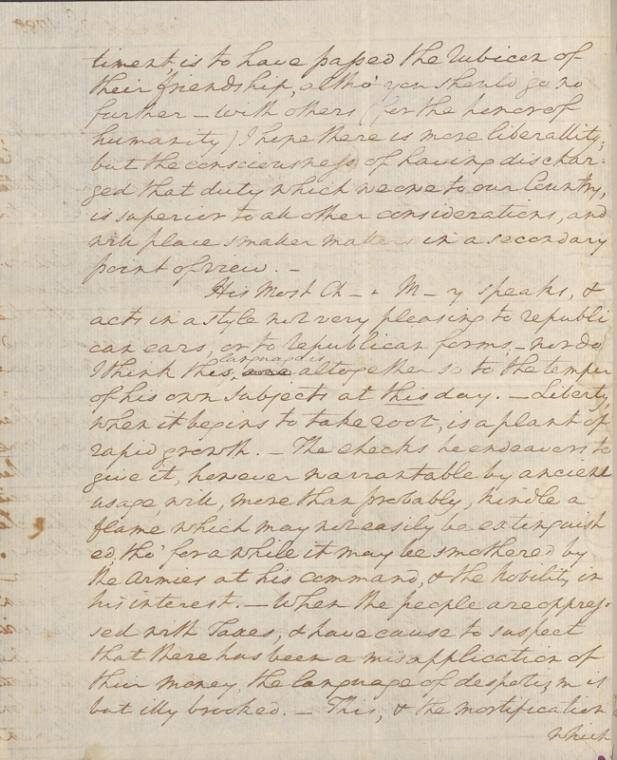 timent, is to have passed the Rubicon of
their friendship, altho' you should go no
further – with others (for the honor of
humanity) I hope there is more liberallity;
but the consciousness of having dischar-
ged that duty which we owe to our Country,
is superior to all other considerations, and
will place smaller matters in a secondary
point of view. –
His Most Ch – n M – y speaks, &
acts in a style not very pleasing to republi
can ears, or to republican forms – nor do
language is
I think this, altogether so to the temper
of his own subjects at this day. – Liberty,
when it begins to take root, is a plant of
rapid growth. – The checks he endeavors to
give it, however warrantable by ancient
usage, will, more than probably, kindle a
flame which may not easily be extinguish
ed, tho' for a while it may be smothered by
the Armies at his command, & the Nobility in
his interest. – When the people are oppres-
sed with Taxes, & have cause to suspect
that there has been a misapplication of
their money, the language of despotism is
but illy brooked. – This, & the mortification
which